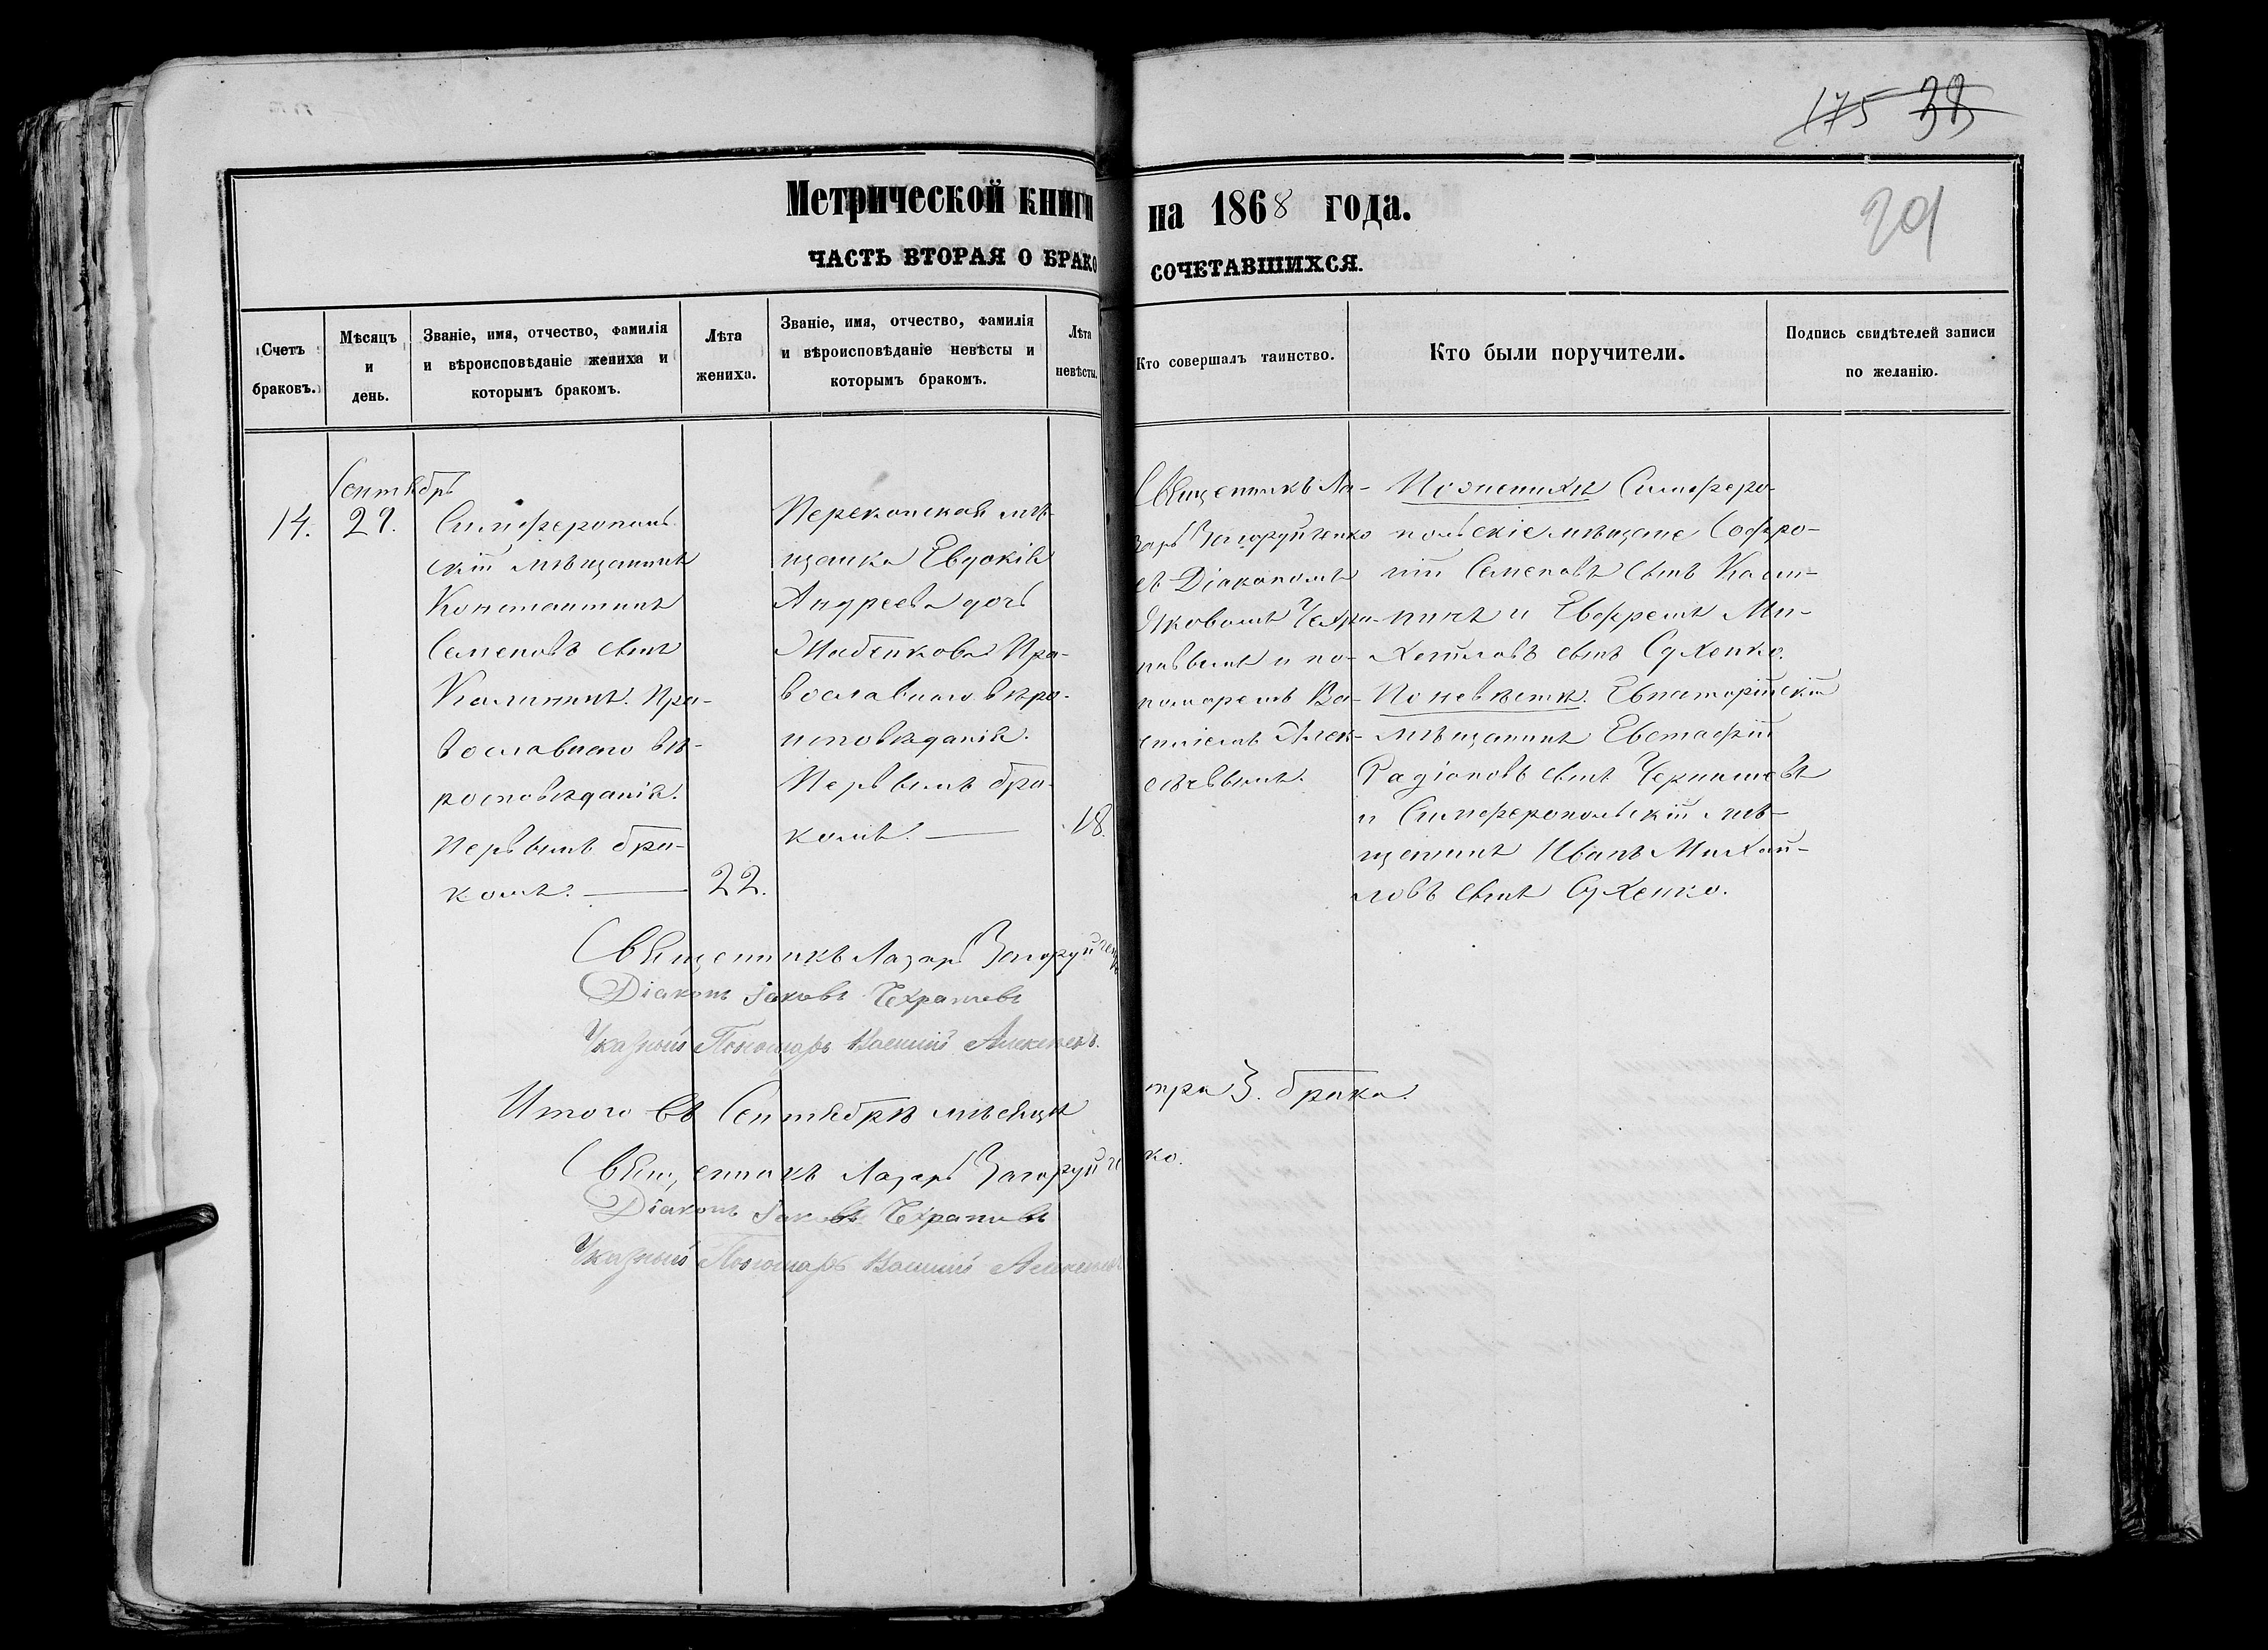 175 38
Метрической книги на 1868 года.
201
ЧАСТЬ ВТОРАЯ О БРАКОСОЧЕТАВШИХСЯ.
Счетъ
браковъ.
Мѣсяцъ
и
день.
Званіе, имя, отчество, фамилія
и вѣроисповѣданіе жениха и
которымъ бракомъ.
Лѣта
жениха.
Званіе, имя, отчество, фамилія
и вѣроисповѣданіе невѣсты и
которымъ бракомъ.
Лѣта
невѣсты.
Кто совершалъ таинство.
Кто были поручители.
Подпись свидѣтелей записи
по желанію.
14.
Сентябрь
29.
Симферополь-
скій мѣщанинъ
Константинъ
Семеновъ сынъ
Калининъ. Пра-
вославного вѣ-
роисповѣданія.
Первымъ бра-
комъ. —
22.
Перекопская мѣ-
щанка Евдокія
Андреева дочь
Пра-
вославного вѣро-
исповѣданія.
Первымъ бра-
комъ. —
18.
Священникъ Ла-
зарь Загоруйченко
съ Діакономъ
Яковомъ Чехра-
новымъ и по-
номаремъ Ва-
силіемъ Алек-
сѣевымъ.
По женихѣ Симферо-
польскіе мѣщане Софро-
ній Семеновъ сынъ Кали-
нинъ и Евфремъ Ми-
хайловъ сынъ Сухенко.
По невѣстѣ. Евпаторійскій
мѣщанинъ Евстафій
Радіоновъ сынъ Чернышовъ
и Симферопольскій мѣ-
щанинъ Иванъ Михай-
ловъ сынъ Сухенко.
Священникъ Лазарь Загоруйченко
Діаконъ Іаковъ Чехрановъ
Указный Пономарь Василій Алексѣевъ.
Итого въ Сентябрѣ мѣсяцѣ три 3. брака.
Священникъ Лазарь Загоруйченко.
Діаконъ Іаковъ Чехрановъ
Указный Пономарь Василій Алексѣевъ